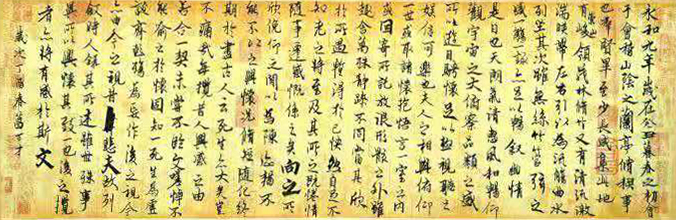 永和九年歲在癸丑暮春之初
于會稽山陰之蘭亭脩禊事
也群賢畢至少長咸集此地
有崇山峻領茂林脩竹又有清流激
湍暎帶左右引以為流觴曲水
列坐其次雖無絲竹管弦之
盛一觴一詠亦足以暢敘幽情
是日也天朗氣清惠風和暢仰
觀宇宙之大俯察品類之盛
所以遊目騁懷足以極視聽之
娛信可樂也夫人之相與俯仰
一世或取諸懷抱悟言一室之內
或因寄所託放浪形骸之外雖
趣舍萬殊靜躁不同當其欣
於所遇暫得於己快然自足不
知老之將至及其所之既惓情
隨事遷感慨係之矣向之所
欣俛仰之閒以為陳跡猶不
能不以之興懷況脩短隨化終
期於盡古人云死生亦大矣豈
不痛哉每攬昔人興感之由
若合一契未嘗不臨文嗟悼不
能喻之於懷固知一死生為虛
誕齊彭殤為妄作後之視今
亦由今之視昔悲夫故列
敘時人錄其所述雖世殊事
異所以興懷其致一也後之攬
者亦將有感於斯文